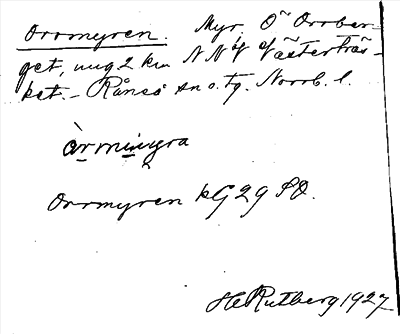 Orrmyren. Myr Ö Orrber-
get, ung 2 km NNV Västerträs-
ket. - Råneå sn o. tg. Norrb. l.
Orrmyren kG 29 SO.
HRutberg 1927